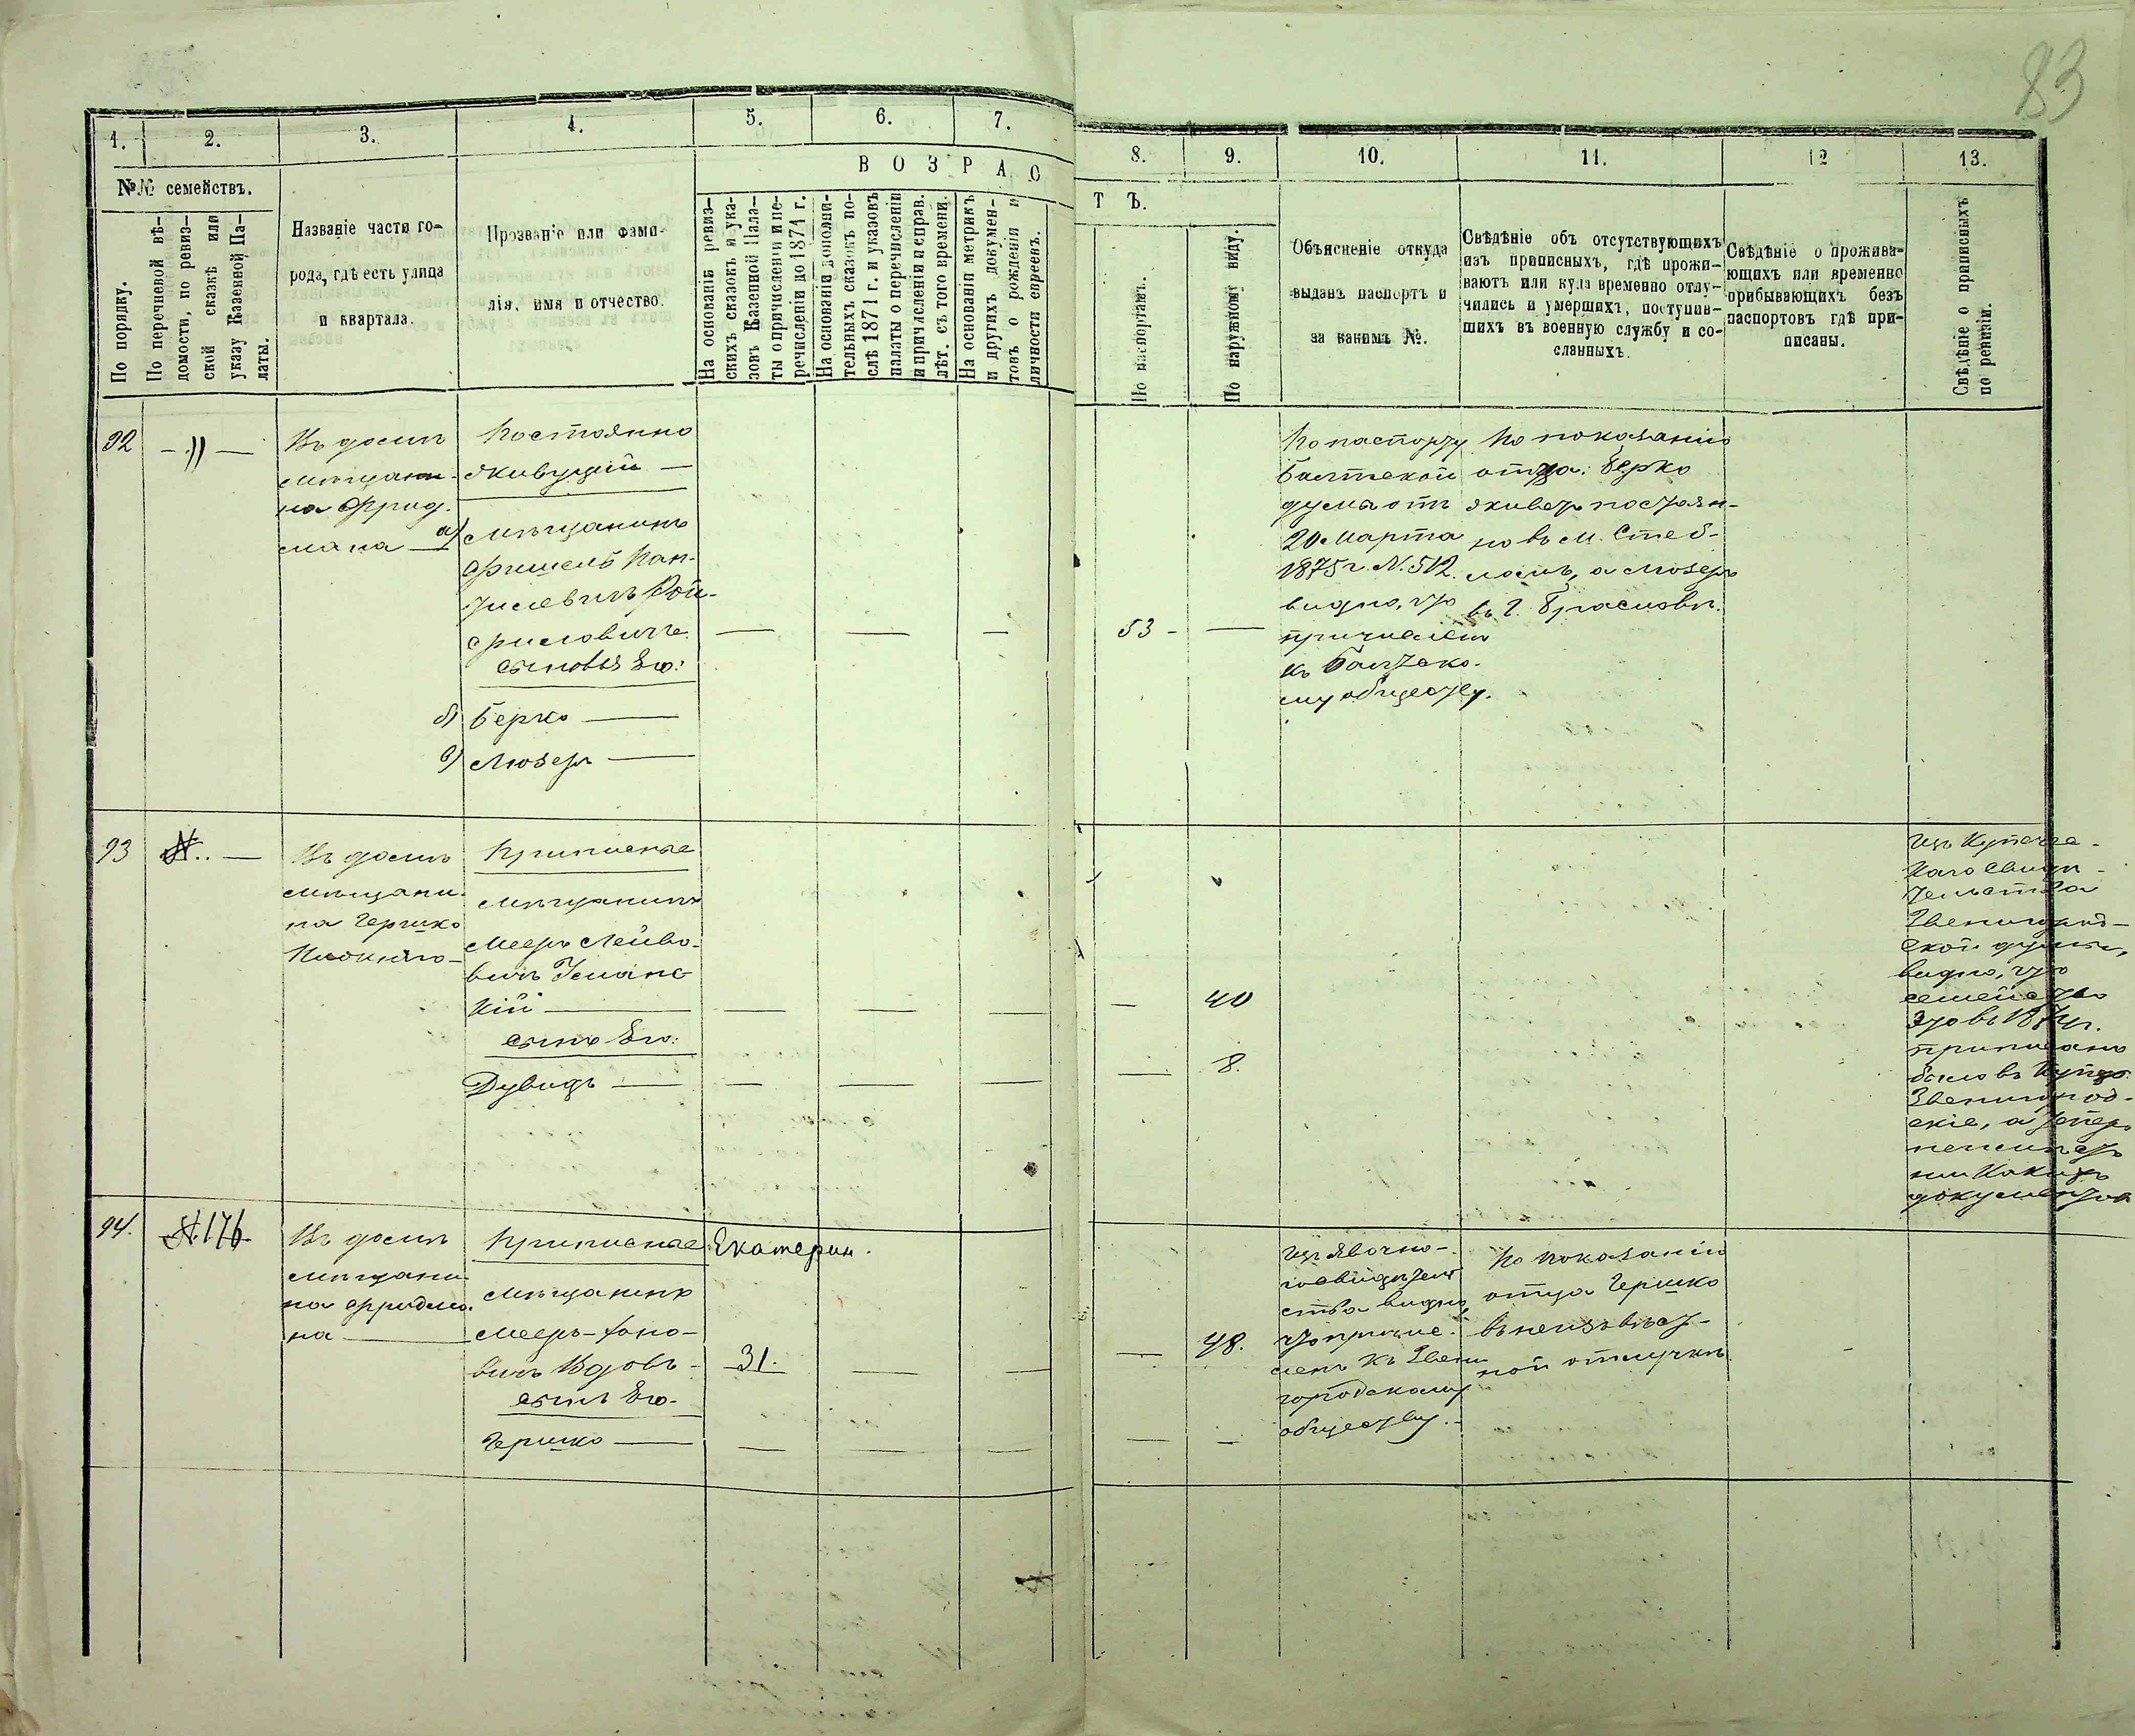 83
1.
2.
3.
4.
5.
6.
7.
8.
9.
10.
11.
12
13.
№№ семействъ.
В О З Р А С
Т Ъ.
По порядку.
По перечневой вѣ-
домости, по ревиз-
ской сказкѣ или
указу Казенной Па-
латы.
Названіе части го-
рода, гдѣ есть улица
и квартала.
Прозваніе или фами-
лія, имя и отчество.
На основаніи ревиз-
скихъ сказокъ и ука-
зовъ Казенной Пала-
ты о причисленіи и пе-
речисленіи до 1871 г.
На основаніи дополни-
тельныхъ сказокъ по-
слѣ 1871 г. и указовъ
палаты о перечисленіи
и причисленіи и справ.
лѣт. съ того времени.
На основаніи метрикъ
и другихъ докумен-
товъ о рожденіи и
личности евреевъ.
По паспортамъ.
По наружному виду.
Объясненіе откуда
выданъ паспортъ и
за какимъ №.
Свѣдѣніе объ отсутствующихъ
изъ приписныхъ, гдѣ прожи-
ваютъ или куда временно отлу-
чились и умершихъ, поступив-
шихъ въ военную службу и со-
сланныхъ.
Свѣдѣніе о прожива-
ющихъ или временно
прибывающихъ безъ
паспортовъ гдѣ при-
писаны.
Свѣдѣніе о приписныхъ
по ревизіи.
92
— " —
Въ домѣ
мѣщани-
на Фрид-
мана
Постоянно
живущій —
а) мѣщанинъ
Фишель
сыновья Его:
б) Берко —
в) Мозеръ —
53 -
По паспорту
Балтской
думы отъ
20 Марта
1875 г. N. 512.
видно, что
причислен
къ Балтско-
му обществу.
По показанію
отца: Берко
живетъ постоян-
но въ м. Стеб-
ловѣ, а Мозеръ
93
N.. —
Въ домѣ
мѣщани-
на Гершко
Приписные
мѣщанинъ
Мееръ Лейбо-
вичъ Уманс
кій —
сынъ Его:
Дувидъ —
40
8.
Изъ Купече-
каго Свидѣ-
тельства
Звенигород-
ской думы,
видно, что
семейство
приписано
было въ Купцы
Звенигород-
скіе, а теперь
документов
94.
N. 176
Въ домѣ
мѣщани-
на Фридма-
на —
Приписные:
Екатерин.
мѣщанинъ
Мееръ-
вичъ Вдовъ -
31.
сынъ Его.
Гершко —
48.
Изъ явочно-
го свидѣтель
ства видно,
что причис-
ленъ къ Звени
городскому
обществу. -
По показанію
отца Гершко
въ неизвѣст-
ной отлучкѣ.